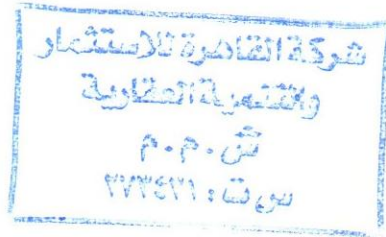 شركة القاهرة للاستثمار
والتنمية العقارية
ش.م.م
س ت: ٣٧٣٤٢١